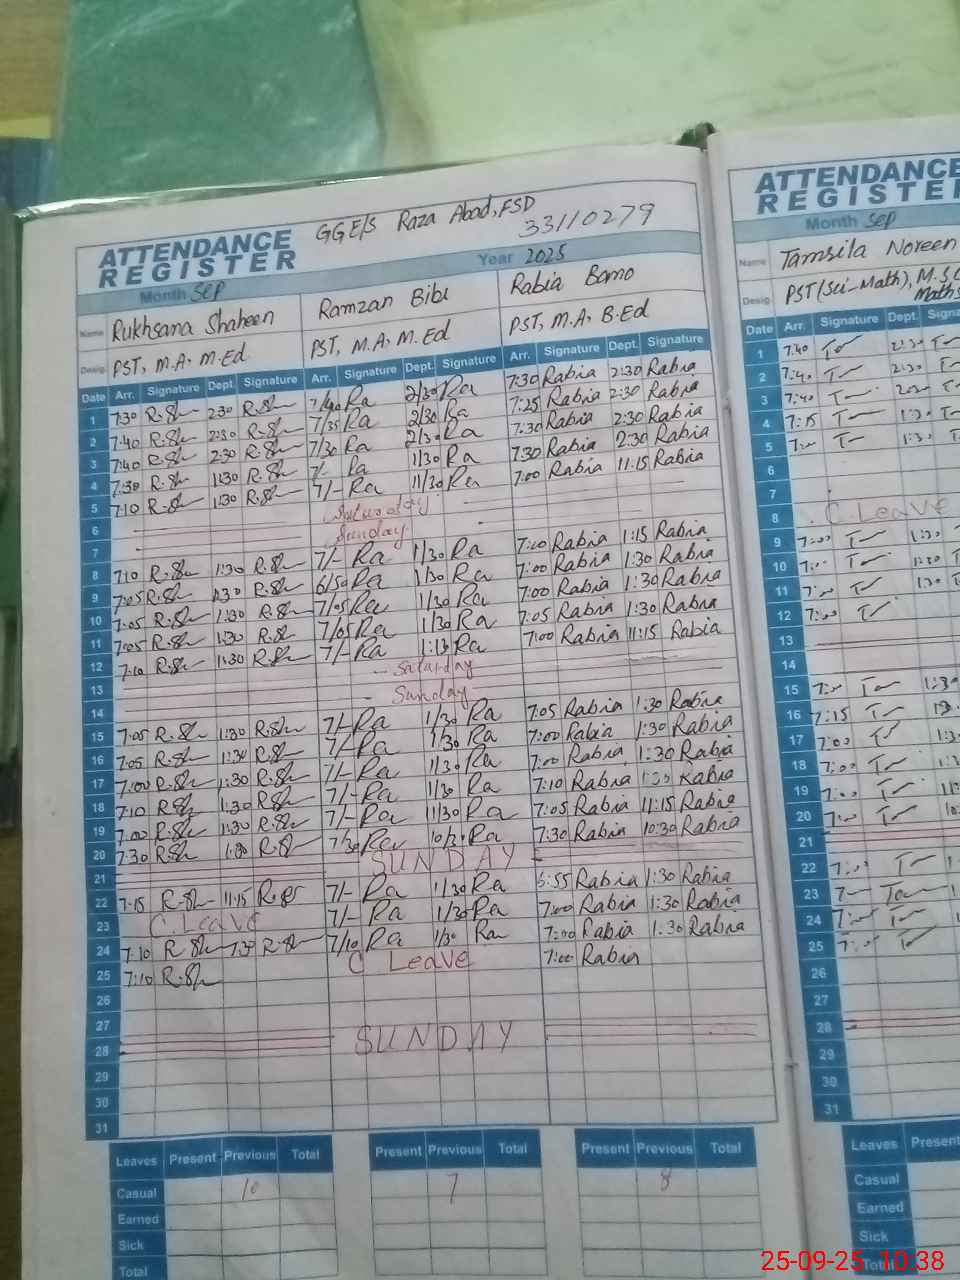 GGE/S Raza Abad, FSD
33110279
ATTENDANCE REGISTER
Month Sep Year 2025
Name Rukhsana Shaheen Ramzan Bibi Rabia Bano
Desig. PST, M.A, M.Ed. PST, M.A, M.Ed PST, M.A, B.Ed
Date Arr. Signature Dept. Signature Arr. Signature Dept. Signature Arr. Signature Dept. Signature
1 7:30 R.Sh 2:30 R.Sh 7/40 Ra 2/30 Ra 7:30 Rabia 2:30 Rabia
2 7:40 R.Sh 2:30 R.Sh 7/35 Ra 2/30 Ra 7:25 Rabia 2:30 Rabia
3 7:40 R.Sh 2:30 R.Sh 7/30 Ra 2/30 Ra 7:30 Rabia 2:30 Rabia
4 7:30 R.Sh 1:30 R.Sh 7/- Ra 1/30 Ra 7:30 Rabia 2:30 Rabia
5 7:10 R.Sh 1:30 R.Sh 7/- Ra 11/30 Ra 7:00 Rabia 11:15 Rabia
6 Saturday
7 Sunday
8 7:10 R.Sh 1:30 R.Sh 7/- Ra 1/30 Ra 7:00 Rabia 1:15 Rabia
9 7:05 R.Sh 1:30 R.Sh 6/50 Ra 1/30 Ra 7:00 Rabia 1:30 Rabia
10 7:05 R.Sh 1:30 R.Sh 7/05 Ra 1/30 Ra 7:00 Rabia 1:30 Rabia
11 7:05 R.Sh 1:30 R.Sh 7/05 Ra 1/30 Ra 7:05 Rabia 1:30 Rabia
12 7:10 R.Sh 11:30 R.Sh 7/- Ra Ra 7:00 Rabia 11:15 Rabia
13 Saturday
14 Sunday
15 7:05 R.Sh 1:30 R.Sh 7/- Ra 1/30 Ra 7:05 Rabia 1:30 Rabia
16 7:05 R.Sh 1:30 R.Sh 7/- Ra 1/30 Ra 7:00 Rabia 1:30 Rabia
17 7:00 R.Sh 1:30 R.Sh 7/- Ra 1/30 Ra 7:00 Rabia 1:30 Rabia
18 7:10 R.Sh 1:30 R.Sh 7/- Ra 1/30 Ra 7:10 Rabia Rabia
19 7:00 R.Sh R.Sh 7/- Ra 11/30 Ra 7:05 Rabia 11:15 Rabia
20 7:30 R.Sh R.Sh 7/30 Ra 10/30 Ra 7:30 Rabia 10:30 Rabia
21 SUNDAY
22 7:15 R.Sh 11:15 R.Sh 7/- Ra 1/30 Ra 6:55 Rabia 1:30 Rabia
23 C.Leave 7/- Ra 1/30 Ra 7:00 Rabia 1:30 Rabia
24 7:10 R.Sh R.Sh 7/10 Ra 1/30 Ra 7:00 Rabia 1:30 Rabia
25 7:10 R.Sh C Leave 7:00 Rabia
26
27
28 SUNDAY
29
30
31
Leaves Present Previous Total Present Previous Total Present Previous Total
Casual 10 7 8
Earned
Sick
Total
ATTENDANCE
REGISTE
Month Sep
Name Tamsila Noreen
Desig. PST (Sci-Math), M.Sc
Maths
Date Arr. Signature Dept. Signa
1 7:40 2:30
2 7:40 2:30
3 7:40
4 7:15 1:30
5 7:00 1:30
6
7
8 C.Leave
9 7:00 1:30
10 7:00
11 7:00 1:30
12 7:00
13
14
15 7:00 1:30
16 7:15
17 7:00
18 7:00
19 7:00
20 7:00
21
22 7:00
23
24 7:00
25 7:00
26
27
28
29
30
31
Leaves Present
Casual
Earned
Sick
Total
25-09-25 10:38